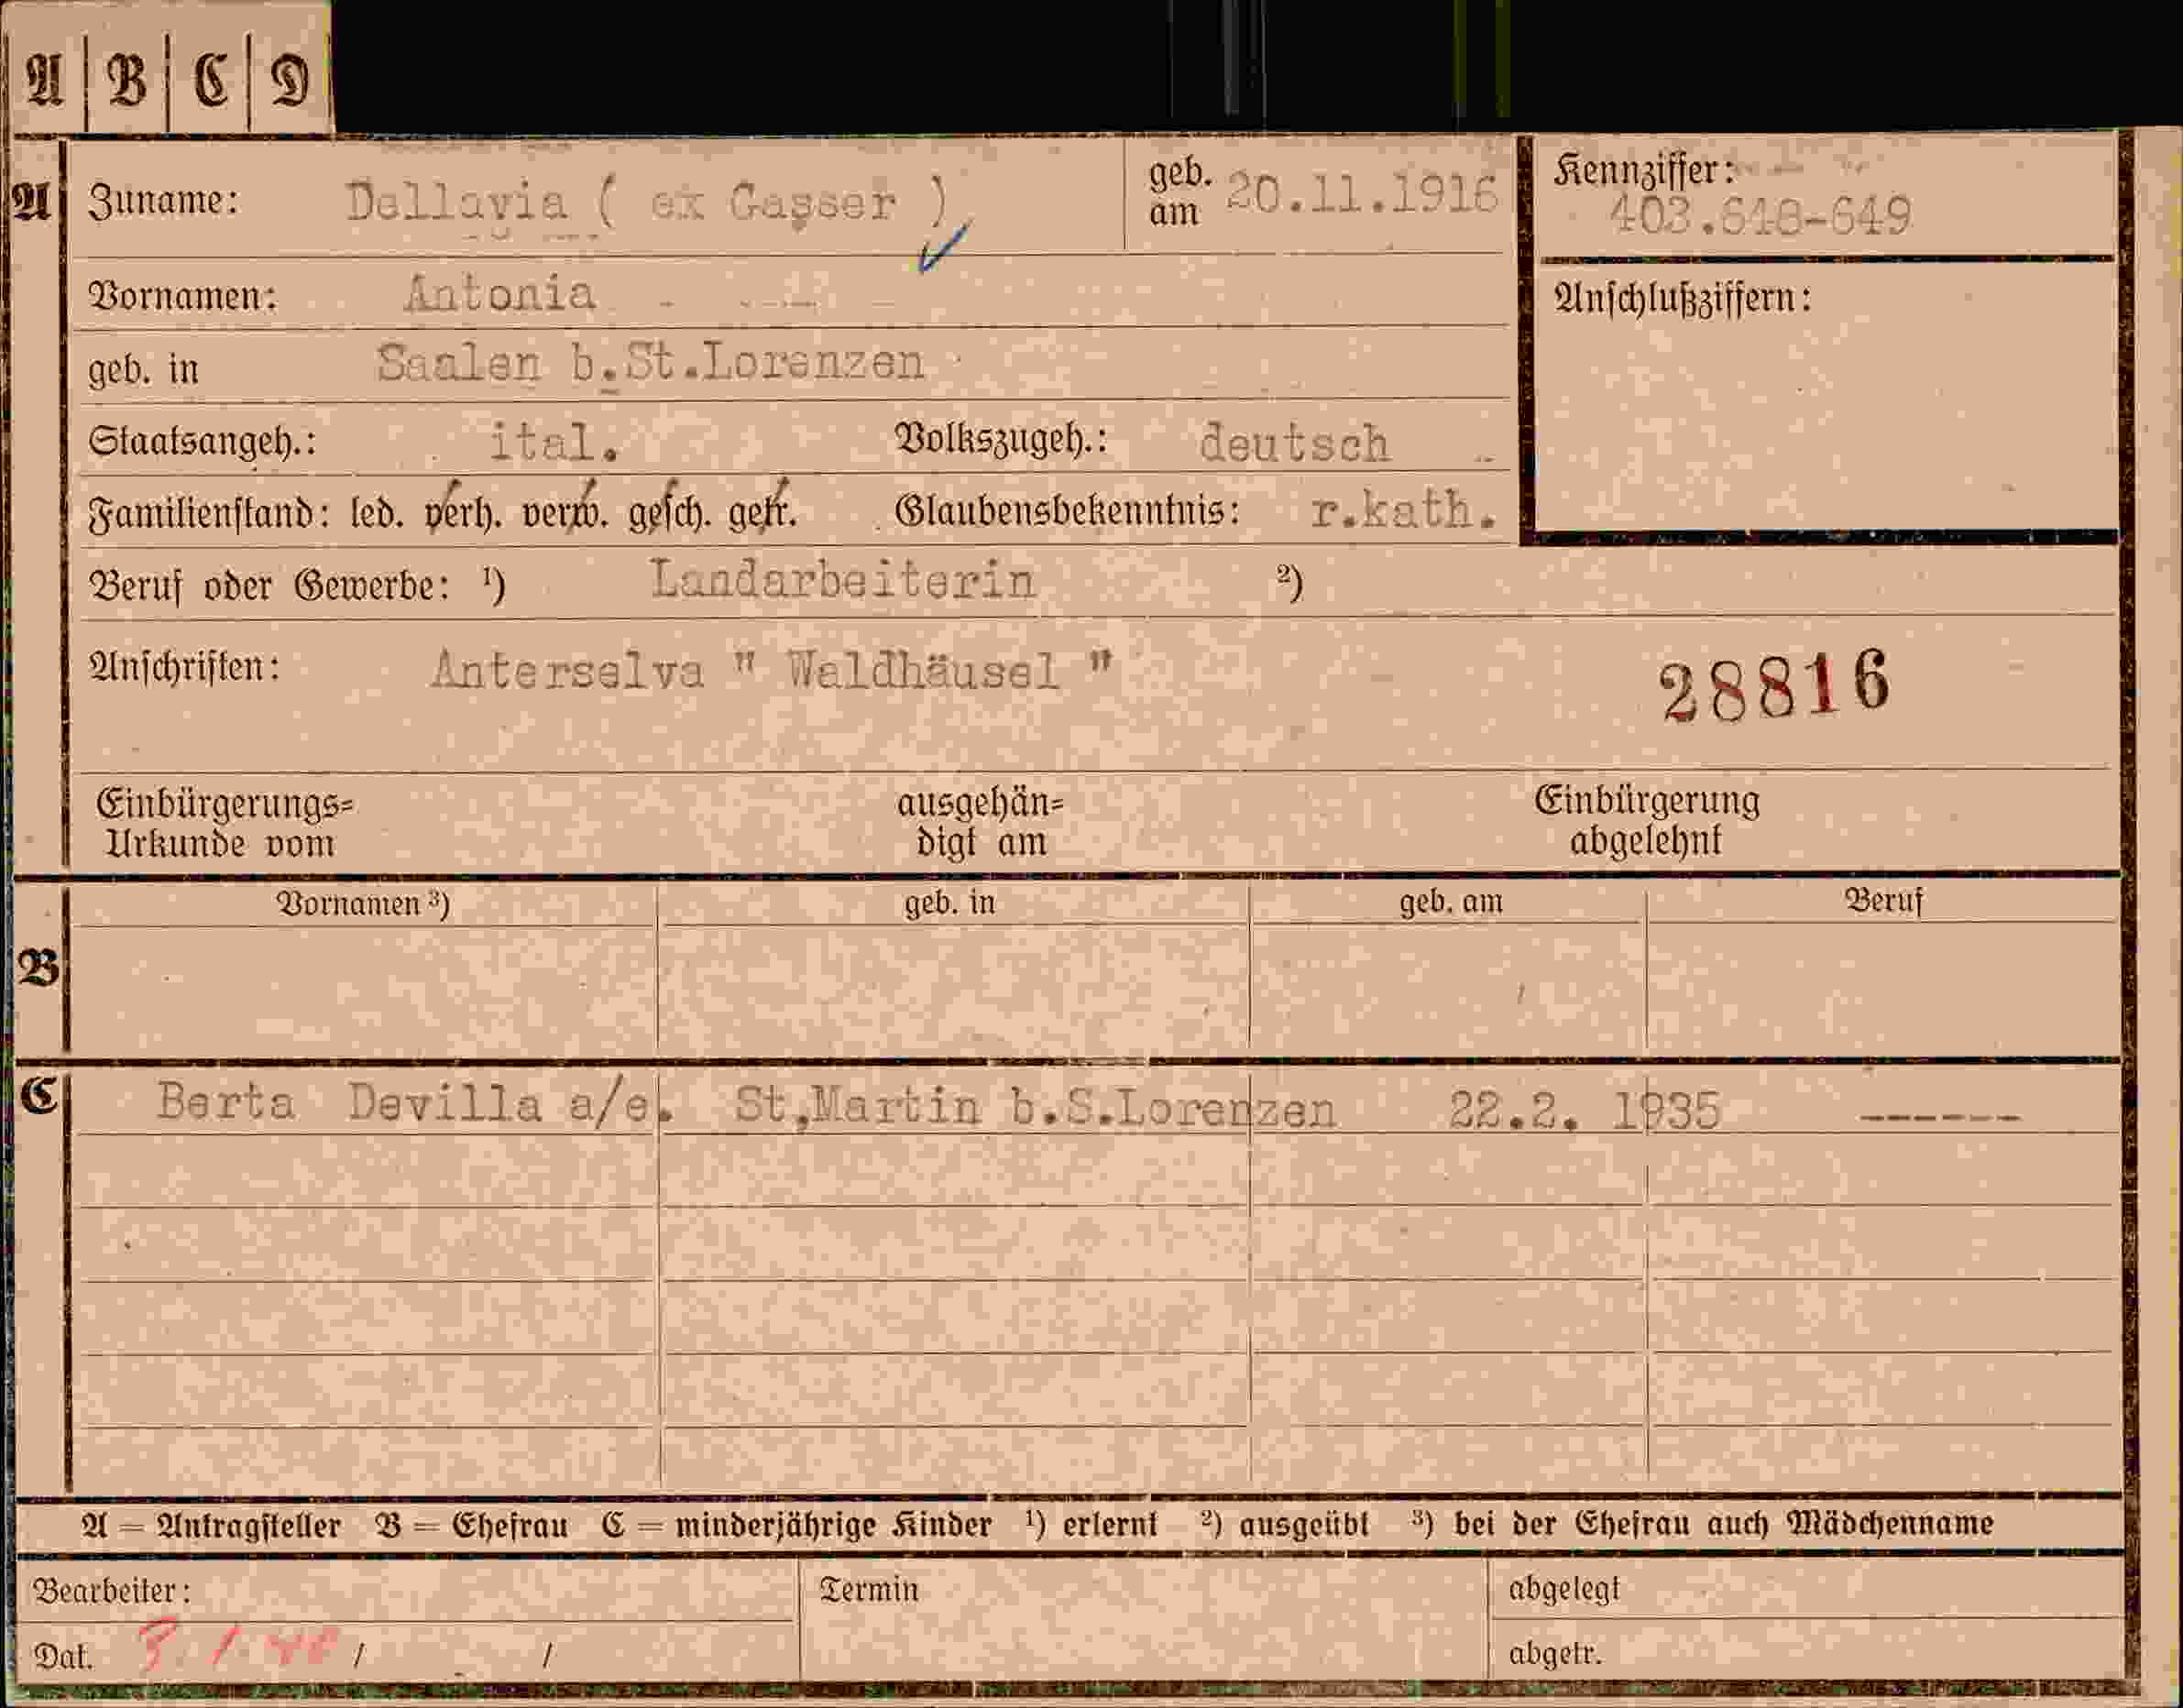 A B C D
A Zuname: Dellavia ( ex Gasser ) geb. am 20.11.1916 Kennziffer: 403.648-649
Vornamen: Antonia Anschlußziffern:
geb. in Saalen b.St.Lorenzen
Staatsangeh.: ital. Volkszugeh.: deutsch
Familienstand: led. verh. verw. gesch. getr. Glaubensbekenntnis: r.kath.
Beruf oder Gewerbe: ¹) Landarbeiterin ²)
Anschriften: Anterselva " Waldhäusel " 28816
Einbürgerungs= ausgehän= Einbürgerung
Urkunde vom digt am abgelehnt
Vornamen ³) geb. in geb. am Beruf
B
C Berta Devilla a/e. St.Martin b.S.Lorenzen 22.2. 1935 ------
A = Antragsteller B = Ehefrau C = minderjährige Kinder ¹) erlernt ²) ausgeübt ³) bei der Ehefrau auch Mädchenname
Bearbeiter: Termin abgelegt
Dat. / / abgetr.